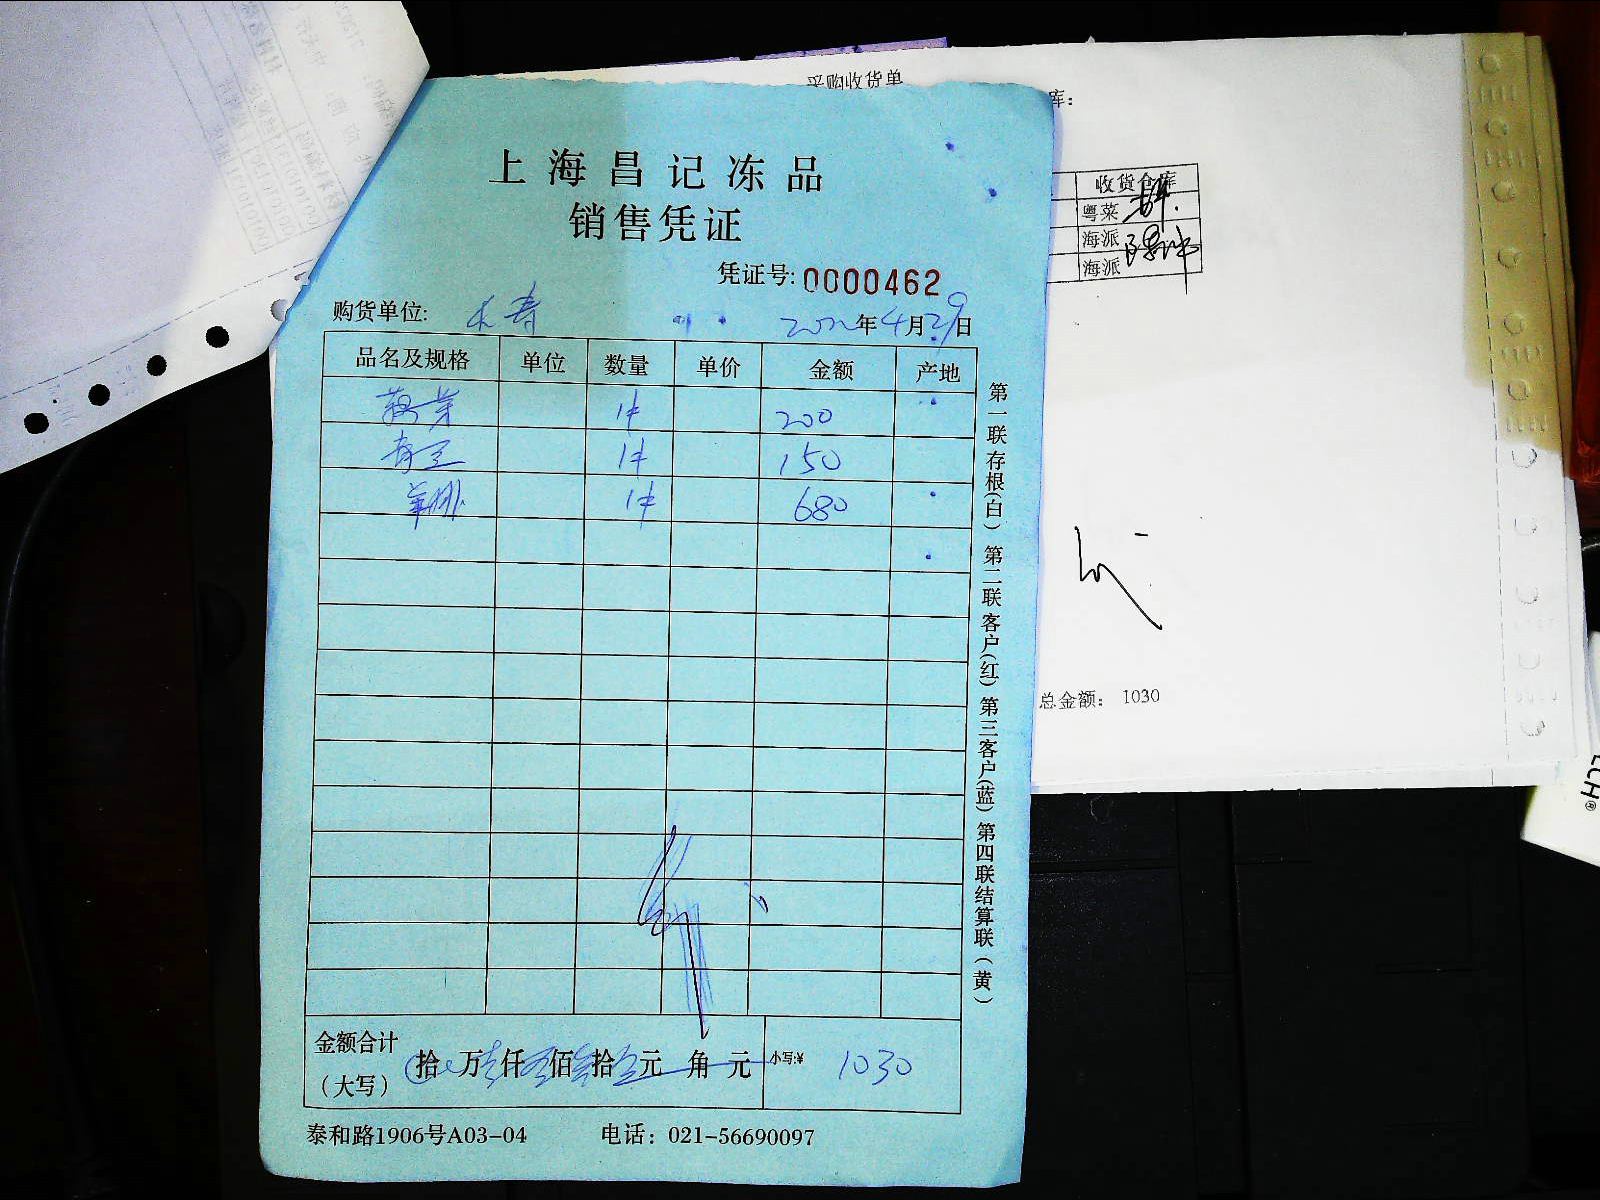 采购收货单
库:
上海昌记冻品
销售凭证
凭证号: 0000462
购货单位: 大寿 2022年4月29日
品名及规格 单位 数量 单价 金额 产地
1件 200
青豆 1件 150
羊排 1件 680
金额合计
(大写) 拾 万壹仟零佰叁拾零元 角 元 小写:¥ 1030
泰和路1906号A03-04 电话: 021-56690097
第一联存根(白) 第二联客户(红) 第三客户(蓝) 第四联结算联(黄)
收货仓库
粤菜
海派
海派
总金额: 1030
LCH®